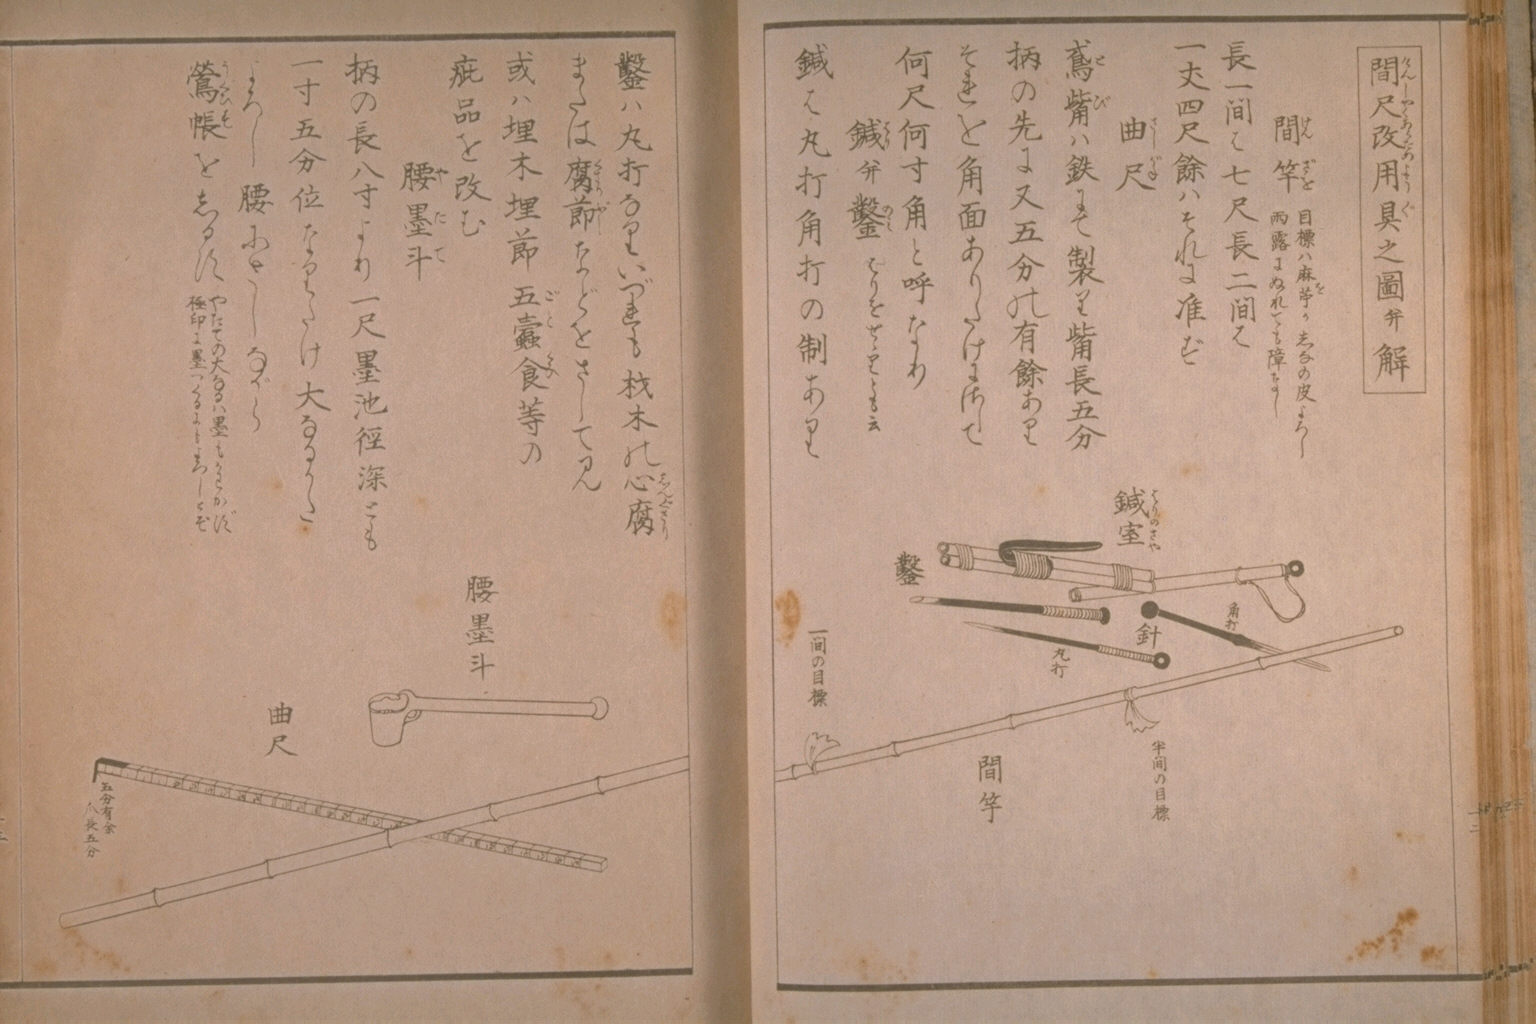 間尺改用具之圖并解
間竿 目標ハ麻苧か志なの皮よろし
雨露にぬれても障なし
長一間は七尺長二間は
一丈四尺餘ハそれに准ず
曲尺
鳶觜ハ鉄にて製り觜長五分
柄の先に又五分の有餘あり
それを角面ありたけにあハして
何尺何寸角と呼なり
鍼并鑿 はりをせりとも云
鍼は丸打角打の制あり
鍼室
鑿
針
角打
丸打
一間の目標
半間の目標
間竿
鑿ハ丸打なりいづれも枝木の心腐
または腐節などをさして見
或ハ埋木埋節五蠧食等の
疵品を改む
腰墨斗
柄の長八寸より一尺墨池徑深とも
一寸五分位なりたけ大なるかた
よろし腰にさしながら
鶯帳をしるす やたての大なるハ墨もかわかず
極印に墨つくるによろしとぞ
腰墨斗
曲尺
五分有余
爪長五分